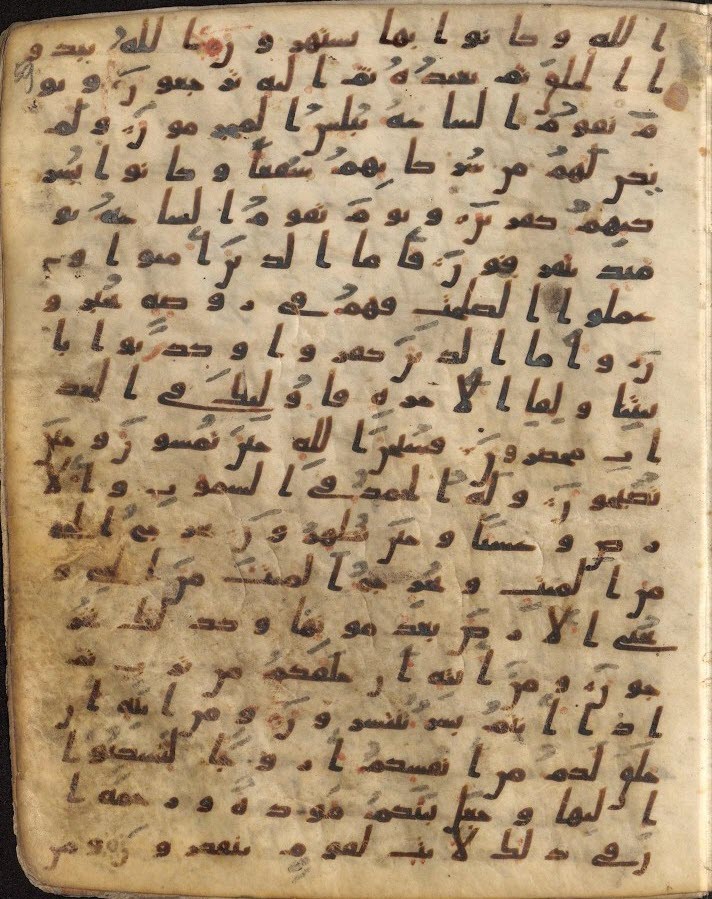 الله وكانوا بها يستهزون الله يبدو
ا الخلق ثم يعيده ثم اليه ترجعون ويو
م تقوم الساعة يبلس المجرمون ولم
يكن لهم من شركايهم شفعا وكانوا بشر
كايهم كفرين ويوم تقوم الساعة يو
ميذ يتفرقون فاما الذين امنوا و
عملوا الصلحت فهم في روضة يحبرو
ن واما الذين كفروا وكذبوا با
يتنا ولقا الاخرة فاوليك في العذ
اب محضرون فسبحن الله حين تمسون وحين
تصبحون وله الحمد في السموت والا
رض وعشيا وحين تظهرون يخرج الحي
من الميت ويخرج الميت من الحي و
يحي الارض بعد موتها وكذلك تخر
جون ومن ايته ان خلقكم من تراب ثم
اذا انتم بشر تنتشرون ومن ايته ان
خلق لكم من انفسكم ازوجا لتسكنوا
اليها وجعل بينكم مودة ورحمة ا
ن في ذلك لايت لقوم يتفكرون ومن